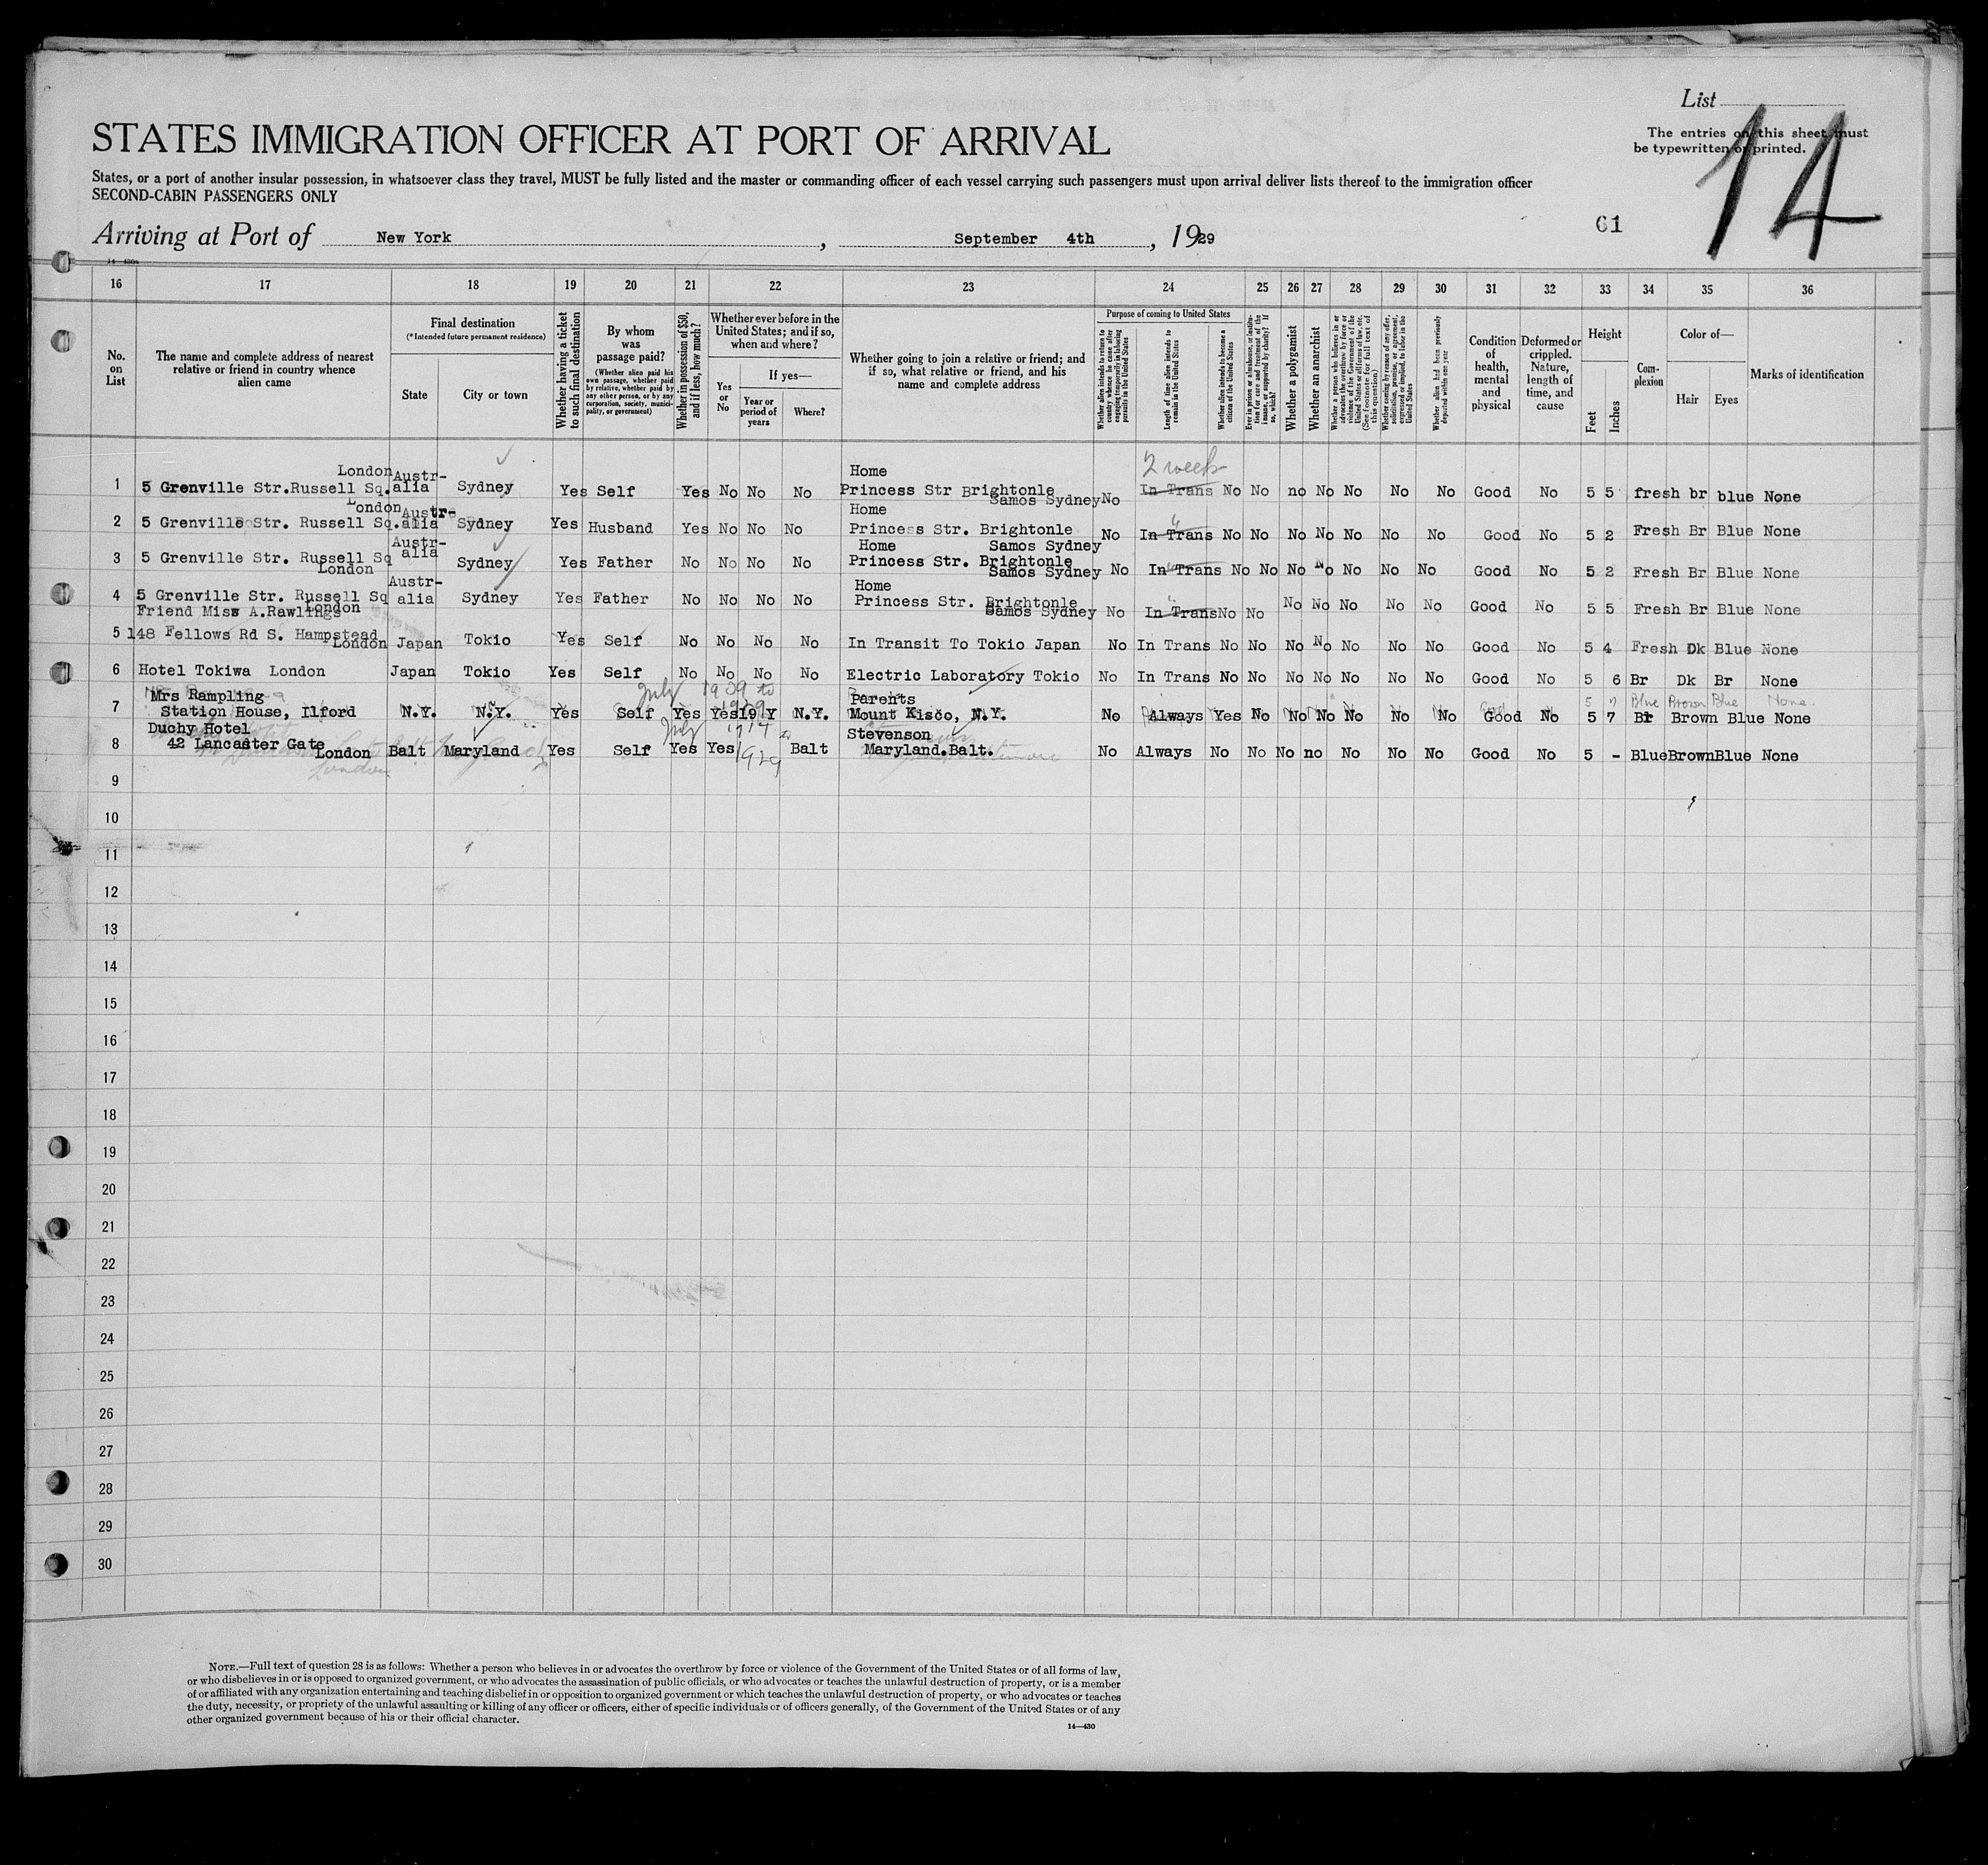 List
14
The entries on this sheet must
be typewritten or printed.
STATES IMMIGRATION OFFICER AT PORT OF ARRIVAL
States, or a port of another insular possession, in whatsoever class they travel, MUST be fully listed and the master or commanding officer of each vessel carrying such passengers must upon arrival deliver lists thereof to the immigration officer
SECOND-CABIN PASSENGERS ONLY
61
Arriving at Port of New York , September 4th , 1929
14—430a
16 17 18 19 20 21 22 23 24 25 26 27 28 29 30 31 32 33 34 35 36
No. on List
The name and complete address of nearest relative or friend in country whence alien came
Final destination (*Intended future permanent residence)
State
City or town
Whether having a ticket to such final destination
By whom was passage paid? (Whether alien paid his own passage, whether paid by relative, whether paid by any other person, or by any corporation, society, municipality, or government)
Whether in possession of $50, and if less, how much?
Whether ever before in the United States; and if so, when and where?
Yes or No
If yes—
Year or period of years
Where?
Whether going to join a relative or friend; and if so, what relative or friend, and his name and complete address
Purpose of coming to United States
Whether alien intends to return to country whence he came after engaging temporarily in laboring pursuits in the United States
Length of time alien intends to remain in the United States
Whether alien intends to become a citizen of the United States
Ever in prison or almshouse, or institution for care and treatment of the insane, or supported by charity? If so, which?
Whether a polygamist
Whether an anarchist
Whether a person who believes in or advocates the overthrow by force or violence of the Government of the United States or all forms of law, etc. (See footnote for full text of this question)
Whether coming by reason of any offer, solicitation, promise, or agreement, expressed or implied, to labor in the United States
Whether alien had been previously deported within one year
Condition of health, mental and physical
Deformed or crippled. Nature, length of time, and cause
Height
Feet
Inches
Complexion
Color of—
Hair
Eyes
Marks of identification
2 weeks
London Austr- Home
1 5 Grenville Str.Russell Sq. alia Sydney Yes Self Yes No No No Princess Str Brightonle Samos Sydney No In Trans No No no No No No No Good No 5 5 fresh br blue None
London Austr- Home
2 5 Grenville Str. Russell Sq. alia Sydney Yes Husband Yes No No No Princess Str. Brightonle No In Trans No No No No No No No Good No 5 2 Fresh Br Blue None
Austr- Home Samos Sydney
3 5 Grenville Str. Russell Sq alia Sydney Yes Father No No No No Princess Str. Brightonle No In Trans No No No No No No No Good No 5 2 Fresh Br Blue None
London Samos Sydney
Austr- Home
4 5 Grenville Str. Russell Sq alia Sydney Yes Father No No No No Princess Str. Brightonle No In Trans No No No No No No No Good No 5 5 Fresh Br Blue None
London Samos Sydney
Friend Miss A.Rawlings
5 148 Fellows Rd S. Hampstead London Japan Tokio Yes Self No No No No In Transit To Tokio Japan No In Trans No No No No No No No Good No 5 4 Fresh Dk Blue None
6 Hotel Tokiwa London Japan Tokio Yes Self No No No No Electric Laboratory Tokio No In Trans No No No No No No No Good No 5 6 Br Dk Br None
Mrs Rampling July Parents 5 7 Blue Brown Blue None
7 Station House, Ilford N.Y. N.Y. Yes Self Yes Yes 19 Y N.Y. Mount Kisco, N.Y. No Always Yes No No No No No No Good No 5 7 Br Brown Blue None
Duchy Hotel July 1914 Stevenson
8 42 Lancaster Gate London Balt Maryland Yes Self Yes Yes 1929 Balt Maryland.Balt. No Always No No No no No No No Good No 5 - Blue Brown Blue None
London
9
10
11
12
13
14
15
16
17
18
19
20
21
22
23
24
25
26
27
28
29
30
NOTE.—Full text of question 28 is as follows: Whether a person who believes in or advocates the overthrow by force or violence of the Government of the United States or of all forms of law,
or who disbelieves in or is opposed to organized government, or who advocates the assassination of public officials, or who advocates or teaches the unlawful destruction of property, or is a member
of or affiliated with any organization entertaining and teaching disbelief in or opposition to organized government or which teaches the unlawful destruction of property, or who advocates or teaches
the duty, necessity, or propriety of the unlawful assaulting or killing of any officer or officers, either of specific individuals or of officers generally, of the Government of the United States or of any
other organized government because of his or their official character.
14—430